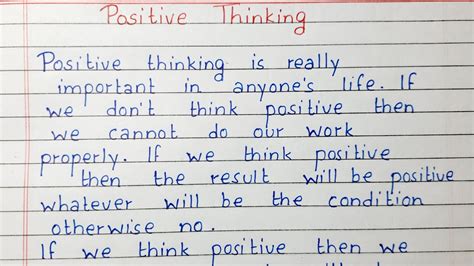 Positive Thinking
Positive thinking is really
important in anyone's life. If
we don't think positive then
we cannot do our work
properly. If we think positive
then the result will be positive
whatever will be the condition
otherwise no.
If we think positive then we